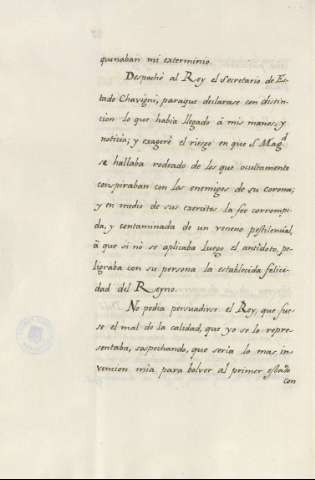 quinaban mi exterminio.
Despaché al Rey el Secretario de Es-
tado Chavigni, paraque declarase con distin-
cion lo que habia llegado á mis manos, y
noticia; y exageré el riesgo en que S. Mag.d
se hallaba rodeado de los que ocultamente
conspiraban con los enemigos de su corona;
y en medio de sus exercitos la fee corrompi-
da, y contaminada de un veneno pestilencial,
á que si no se aplicaba luego el antidoto, pe-
ligraba con su persona la establecida felici-
dad del Reyno.
No podia persuadirse el Rey, que fue-
se el mal de la calidad, que yo se lo repre-
sentaba, sospechando, que seria lo mas, in-
vencion mia para bolver al primer estado
con